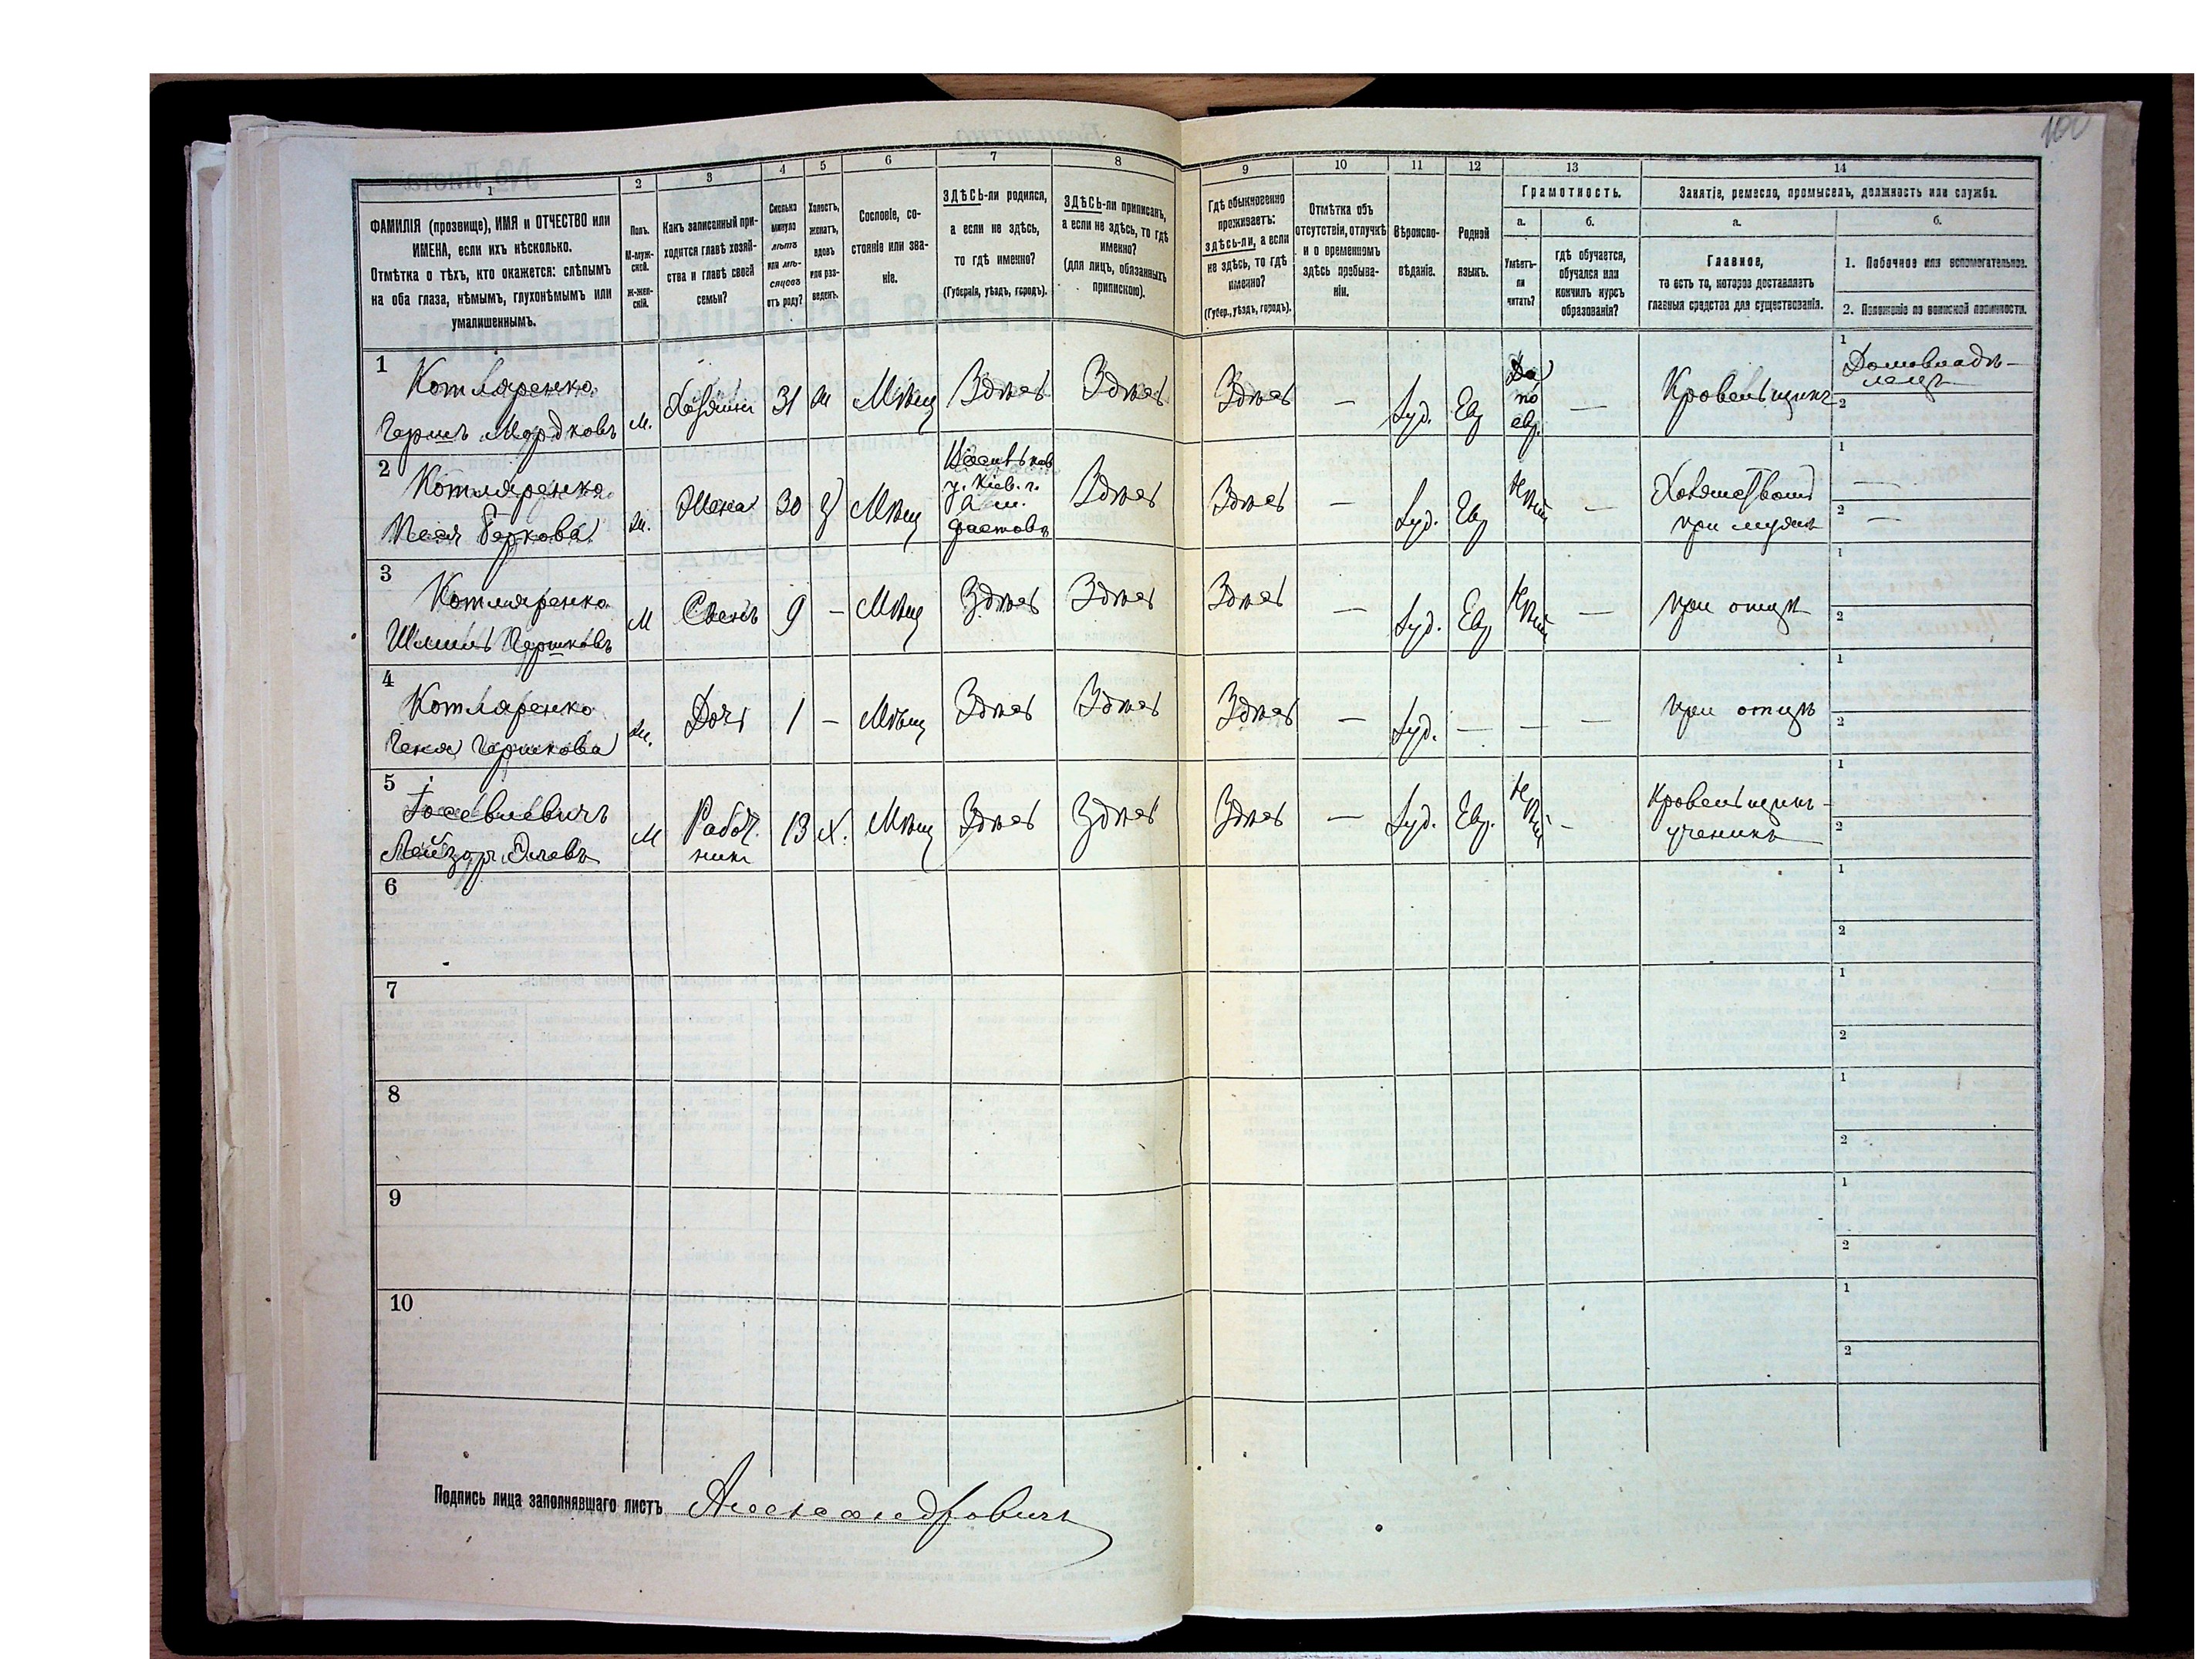 100
1 2 3 4 5 6 7 8 9 10 11 12 13 14
ФАМИЛІЯ (прозвище), ИМЯ и ОТЧЕСТВО или
ИМЕНА, если ихъ нѣсколько.
Отмѣтка о тѣхъ, кто окажется: слѣпымъ
на оба глаза, нѣмымъ, глухонѣмымъ или
умалишеннымъ.
Полъ.
М-муж-
ской.
Ж-жен-
скій.
Какъ записанный при-
ходится главѣ хозяй-
ства и главѣ своей
семьи?
Сколько
минуло
лѣтъ
или мѣ-
сяцевъ
отъ роду?
Холостъ,
женатъ,
вдовъ
или раз-
веденъ.
Сословіе, со-
стояніе или зва-
ніе.
ЗДѢСЬ-ли родился,
а если не здѣсь,
то гдѣ именно?
(Губернія, уѣздъ, городъ).
ЗДѢСЬ-ли приписанъ,
а если не здѣсь, то гдѣ
именно?
(для лицъ, обязанныхъ
припискою).
Гдѣ обыкновенно
проживаетъ:
здѣсь-ли, а если
не здѣсь, то гдѣ
именно?
(Губер., уѣздъ, городъ).
Отмѣтка объ
отсутствіи, отлучкѣ
и о временномъ
здѣсь пребыва-
ніи.
Вѣроиспо-
вѣданіе.
Родной
языкъ.
Грамотность.
а. б.
Умѣетъ-
ли
читать?
гдѣ обучается,
обучался или
кончилъ курсъ
образованія?
Занятіе, ремесло, промыселъ, должность или служба.
а. б.
Главное,
то есть то, которое доставляетъ
главныя средства для существованія.
1. Побочное или вспомогательное.
2. Положеніе по воинской повинности.
1 Котляренко
Гершъ Мордковъ
М. Хозяинъ 31 ж Мѣщ Здѣсь Здѣсь Здѣсь — Іуд. Евр
Да
по
евр.
— Кровельщикъ
1 Домовладѣ-
лецъ
2
2 Котляренко
Песя Беркова
Ж. Жена 30 З Мѣщ
Васильков
у. Кіев. г.
м.
Фастовъ
Здѣсь Здѣсь — Іуд. Евр Нѣтъ —
Хозяйством
при мужѣ
1 —
2 —
3 Котляренко
Шмиль Гершковъ
М Сынъ 9 — Мѣщ Здѣсь Здѣсь Здѣсь — Іуд. Евр Нѣтъ — при отцѣ
1
2
4 Котляренко
Геня Гершкова
Ж. Дочь 1 — Мѣщ Здѣсь Здѣсь Здѣсь — Іуд. — — — при отцѣ
1
2
5 Іосевлевичъ
Лейзоръ Элевъ
М Работ.
никъ
13 Х. Мѣщ Здѣсь Здѣсь Здѣсь — Іуд. Евр. Нѣтъ —
Кровельщикъ-
ученикъ
1
2
6
1
2
7
1
2
8
1
2
9
1
2
10
1
2
Подпись лица заполнявшаго листъ Александровичъ